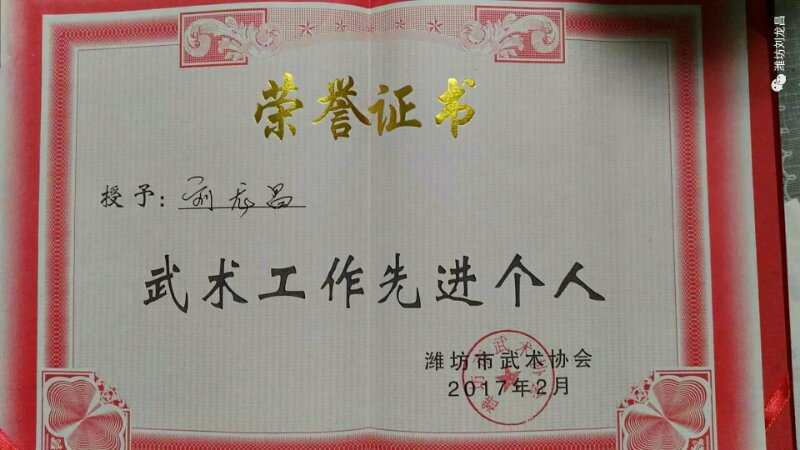 荣誉证书
授予：刘龙昌
武术工作先进个人
潍坊市武术协会
2017年2月
潍坊市武术协会
潍坊刘龙昌